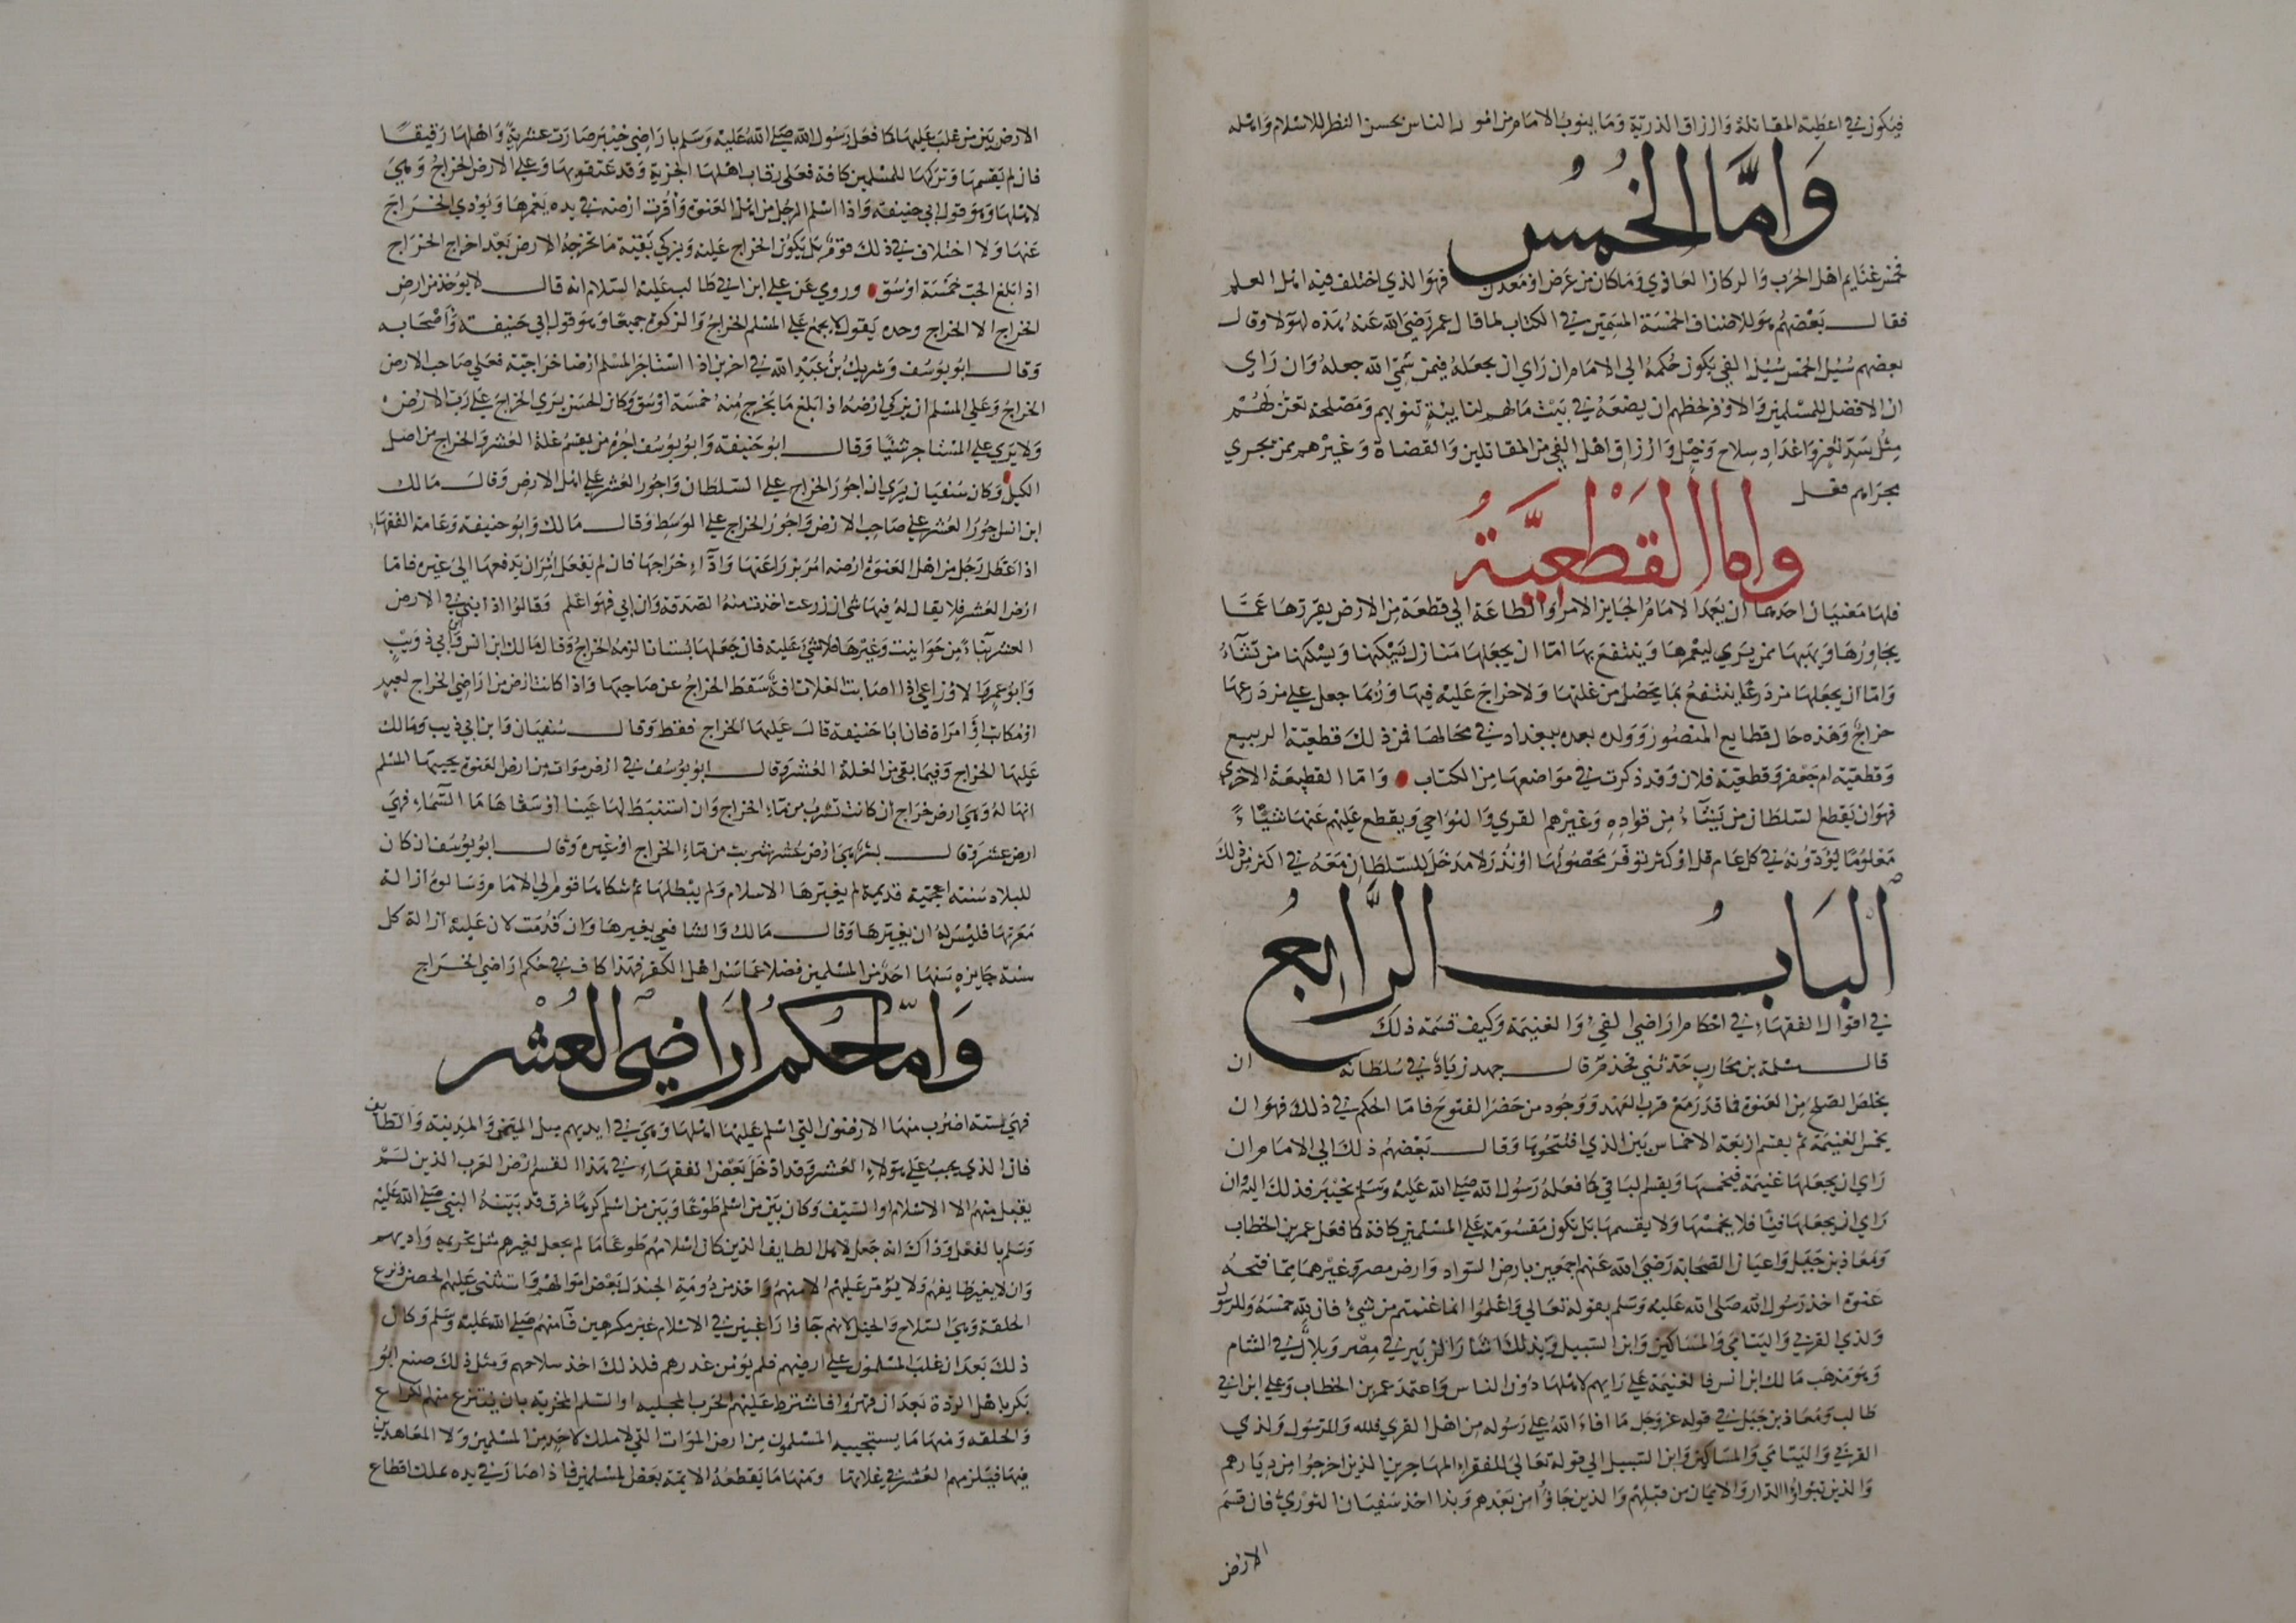 فيكون في اعطية المقاتلة وارزاق الذرية وما ينوب الامام من امور الناس بحسن النظر للاسلام واهله
وَامَّا الخُمُس
فخمس غنايم اهل الحرب والركاز العادي وما كان من عرض او معدن فهو الذي اختلف فيه اهل العلم
فقال بعضهم هو للاصناف الخمسة المسمين في الكتاب لما قال عمر رضي الله عنه هذه لهولا وقال
بعضهم سبيل الخمس سبيل الفي يكون حكمه الى الامام ان راي ان يجعله فيمن سمى الله جعله وان راي
ان الافضل للمسلمين والاوفر لحظهم ان يضعه في بيت مالهم لنايبة تنوبهم ومصلحة تعن لهم
مثل سد ثغر واعداد سلاح وخيل وارزاق اهل الفي من المقاتلين والقضاة وغيرهم ممن يجري
مجراهم فعل
واما القَطْعِيَّةُ
فلها معنيان احدهما ان يعمد الامام الجايز الامر والطاعة الى قطعة من الارض يفرزها عما
يجاورها ويهبها ممن يري ليعمرها وينتفع بها اما ان يجعلها منازل يسكنها ويسكنها من تشاء
واما ان يجعلها مزدرعا ينتفع بما يحصل من غلتها ولا خراج عليه فيها وربما جعل على مزدرعها
خراج وهذه حال قطايع المنصور وولده بعده ببغداد في محالها فمن ذلك قطعية الربيع
وقطعية ام جعفر وقطعية فلان وقد ذكرت في مواضعها من الكتاب واما القطيعة الاخرى
فهو ان يقطع السلطان من يشاء من قواده وغيرهم القري والنواحي ويقطع عليهم عنها شيئا
معلوما يؤدونه في كل عام قل او كثر توفر محصولها او نزر لا مدخل للسلطان معه في اكثر من ذلك
البَابُ الرَّابِعُ
في اقوال الفقهاء في احكام اراضي الفيء والغنيمة وكيف قسمة ذلك
قال مسلمة بن محارب حدثني قحذم قال جهد زياد في سلطانه ان
يخلص الصلح من العنوة فما قدر مع قرب العهد ووجود من حضر الفتوح فاما الحكم في ذلك فهو ان
يخمس الغنيمة ثم يقسم اربعة الاخماس بين الذي افتتحوها وقال بعضهم ذلك الى الامام ان
راي ان يجعلها غنيمة فيخمسها ويقسم الباقي كما فعله رسول الله صلى الله عليه وسلم بخيبر فذلك اليه وان
راي ان يجعلها فيئا فلا يخمسها ولا يقسمها بل تكون مقسومة على المسلمين كافة كما فعل عمر بن الخطاب
ومعاذ بن جبل واعيان الصحابة رضي الله عنهم اجمعين بارض السواد وارض مصر وغيرهما مما فتحه
عنوة اخذ رسول الله صلى الله عليه وسلم بقوله تعالى واعلموا انما غنمتم من شيء فان لله خمسه وللرسول
ولذي القربي واليتامي والمساكين وابن السبيل وبذلك اشار الزبير في مصر وبلال في الشام
وهو مذهب مالك ابن انس فالغنيمة على رايهم لاهلها دون الناس واعتمد عمر بن الخطاب وعلي ابن ابي
طالب ومعاذ بن جبل في قوله عز وجل ما افاء الله على رسوله من اهل القري فلله وللرسول ولذي
القربي واليتامي والمساكين وابن السبيل الى قوله تعالى للفقراء المهاجرين الذين اخرجوا من ديارهم
والذين تبوأوا الدار والايمان من قبلهم والذين جاؤا من بعدهم وبذا اخذ سفيان الثوري فان قسم
الارض
الارض بين من غلب عليها كما فعل رسول الله صلى الله عليه وسلم باراضي خيبر صارت عشرية واهلها رقيقا
فان لم يقسمها وتركها للمسلمين كافة فعلى رقاب اهلها الجزية وقد عتقوا بها وعلى الارض الخراج وهي
لاهلها وهو قول ابي حنيفة واذا اسلم الرجل من اهل العنوة واقرت ارضه في يده يعمرها ويؤدي الخراج
عنها ولا اختلاف في ذلك قوم بل يكون الخراج عليه ويزكي بقية ما تخرجه الارض بعد اخراج الخراج
اذا بلغ الحب خمسة اوسق وروي عن علي ابن ابي طالب عليه السلام انه قال لا يؤخذ من ارض
الخراج الا الخراج وحده يقول لا يجمع على المسلم الخراج والزكوة جميعا وهو قول ابي حنيفة واصحابه
وقال ابو يوسف وشريك بن عبد الله في اخرين اذا استاجر المسلم ارضا خراجية فعلى صاحب الارض
الخراج وعلى المسلم ان يزكي ارضه اذا بلغ ما يخرج منه خمسة اوسق وكان الحسن يري الخراج على رب الارض
ولا يري على المستاجر شيئا وقال ابو حنيفة وابو يوسف اجرة من يقسم غلة العشر والخراج من اصل
الكيل وكان سفيان يري ان اجور الخراج على السلطان واجور العشر على اهل الارض وقال مالك
ابن انس اجور العشر على صاحب الارض واجور الخراج على الوسط وقال مالك وابو حنيفة وعامة الفقهاء
اذا عطل رجل من اهل العنوة ارضه امر بزراعتها واداء خراجها فان لم يفعل امر ان يدفعها الى غيره فاما
ارض العشر فلا يقال له فيها شي ان زرعت اخذت منه الصدقة وان ابي فهو اعلم وقالوا اذا ابنى في الارض
العشر بناء من حوانيت وغيرها فلا شيء عليه فان جعلها بستانا لزمه الخراج وقال مالك ابن انس وابن ابي ذويب
وابو عمرو الاوزاعي اذا اصابت الغلات افة سقط الخراج عن صاحبها واذا كانت ارض من اراضي الخراج لعبد
او مكاتب او امراة فان ابا حنيفة قال عليها الخراج فقط وقال سفيان وابن ابي ذيب ومالك
عليها الخراج وفيما بقي من الغلة العشر وقال ابو يوسف في ارض موات من ارض العنوة يحييها المسلم
انها له وهي ارض خراج ان كانت تشرب من ماء الخراج وان استنبط لها عينا او سقاها ماء السماء فهي
ارض عشر وقال بشر هي ارض عشر شربت من ماء الخراج او غيره وقال ابو يوسف ان كان
للبلاد سنة اعجمية قديمة لم يغيرها الاسلام ولم يبطلها ثم شكاها قوم الى الامام وسالوه ازالة
معرتها فليس له ان يغيرها وقال مالك والشافعي يغيرها وان قدمت لان عليه ازالة كل
سنة جايزة سنها احد من المسلمين فضلا عما سن اهل الكفر فهذا كاف في حكم اراضي الخراج
وَامّا حُكمُ اَراضي العُشْر
فهي ستة اضرب منها الارضون التي اسلم عليها اهلها وهي في ايديهم مثل اليمن والمدينة والطايف
فان الذي يجب على هولاء العشر وقد ادخل بعض الفقهاء في هذا القسم ارض العرب الذين لم
يقبل منهم الا الاسلام او السيف وكان بين من اسلم طوعا وبين من اسلم كرها فرق قد بينه النبي صلى الله عليه
وسلم بالفعل وذاك انه جعل لاهل الطايف الذين كان اسلامهم طوعا ما لم يجعل لغيرهم مثل تحريمه واديهم
وان لا يغير طايفهم ولا يؤمر عليهم الا منهم واخذ من دومة الجندل بعض اموالهم واستثنى عليهم الحصن ونزع
الحلقة وهي السلاح والخيل لانهم جاؤا راغبين في الاسلام غير مكرهين فآمنهم صلى الله عليه وسلم وكان
ذلك بعد ان غلب المسلمون على ارضهم فلم يؤمن غدرهم فلذلك اخذ سلاحهم ومثل ذلك صنع ابو
بكر باهل الردة بعد ان قهروا فاشترط عليهم الحرب المجلية او السلم المخزية بان ينتزع منهم الكراع
والحلقه ومنها ما يستحييه المسلمون من ارض الموات التي لا ملك لاحد من المسلمين ولا المعاهدين
فيها فيلزمهم العشر في غلاتها ومنها ما يقطعه الايمة بعض المسلمين فاذا صار في يده بملك اقطاع